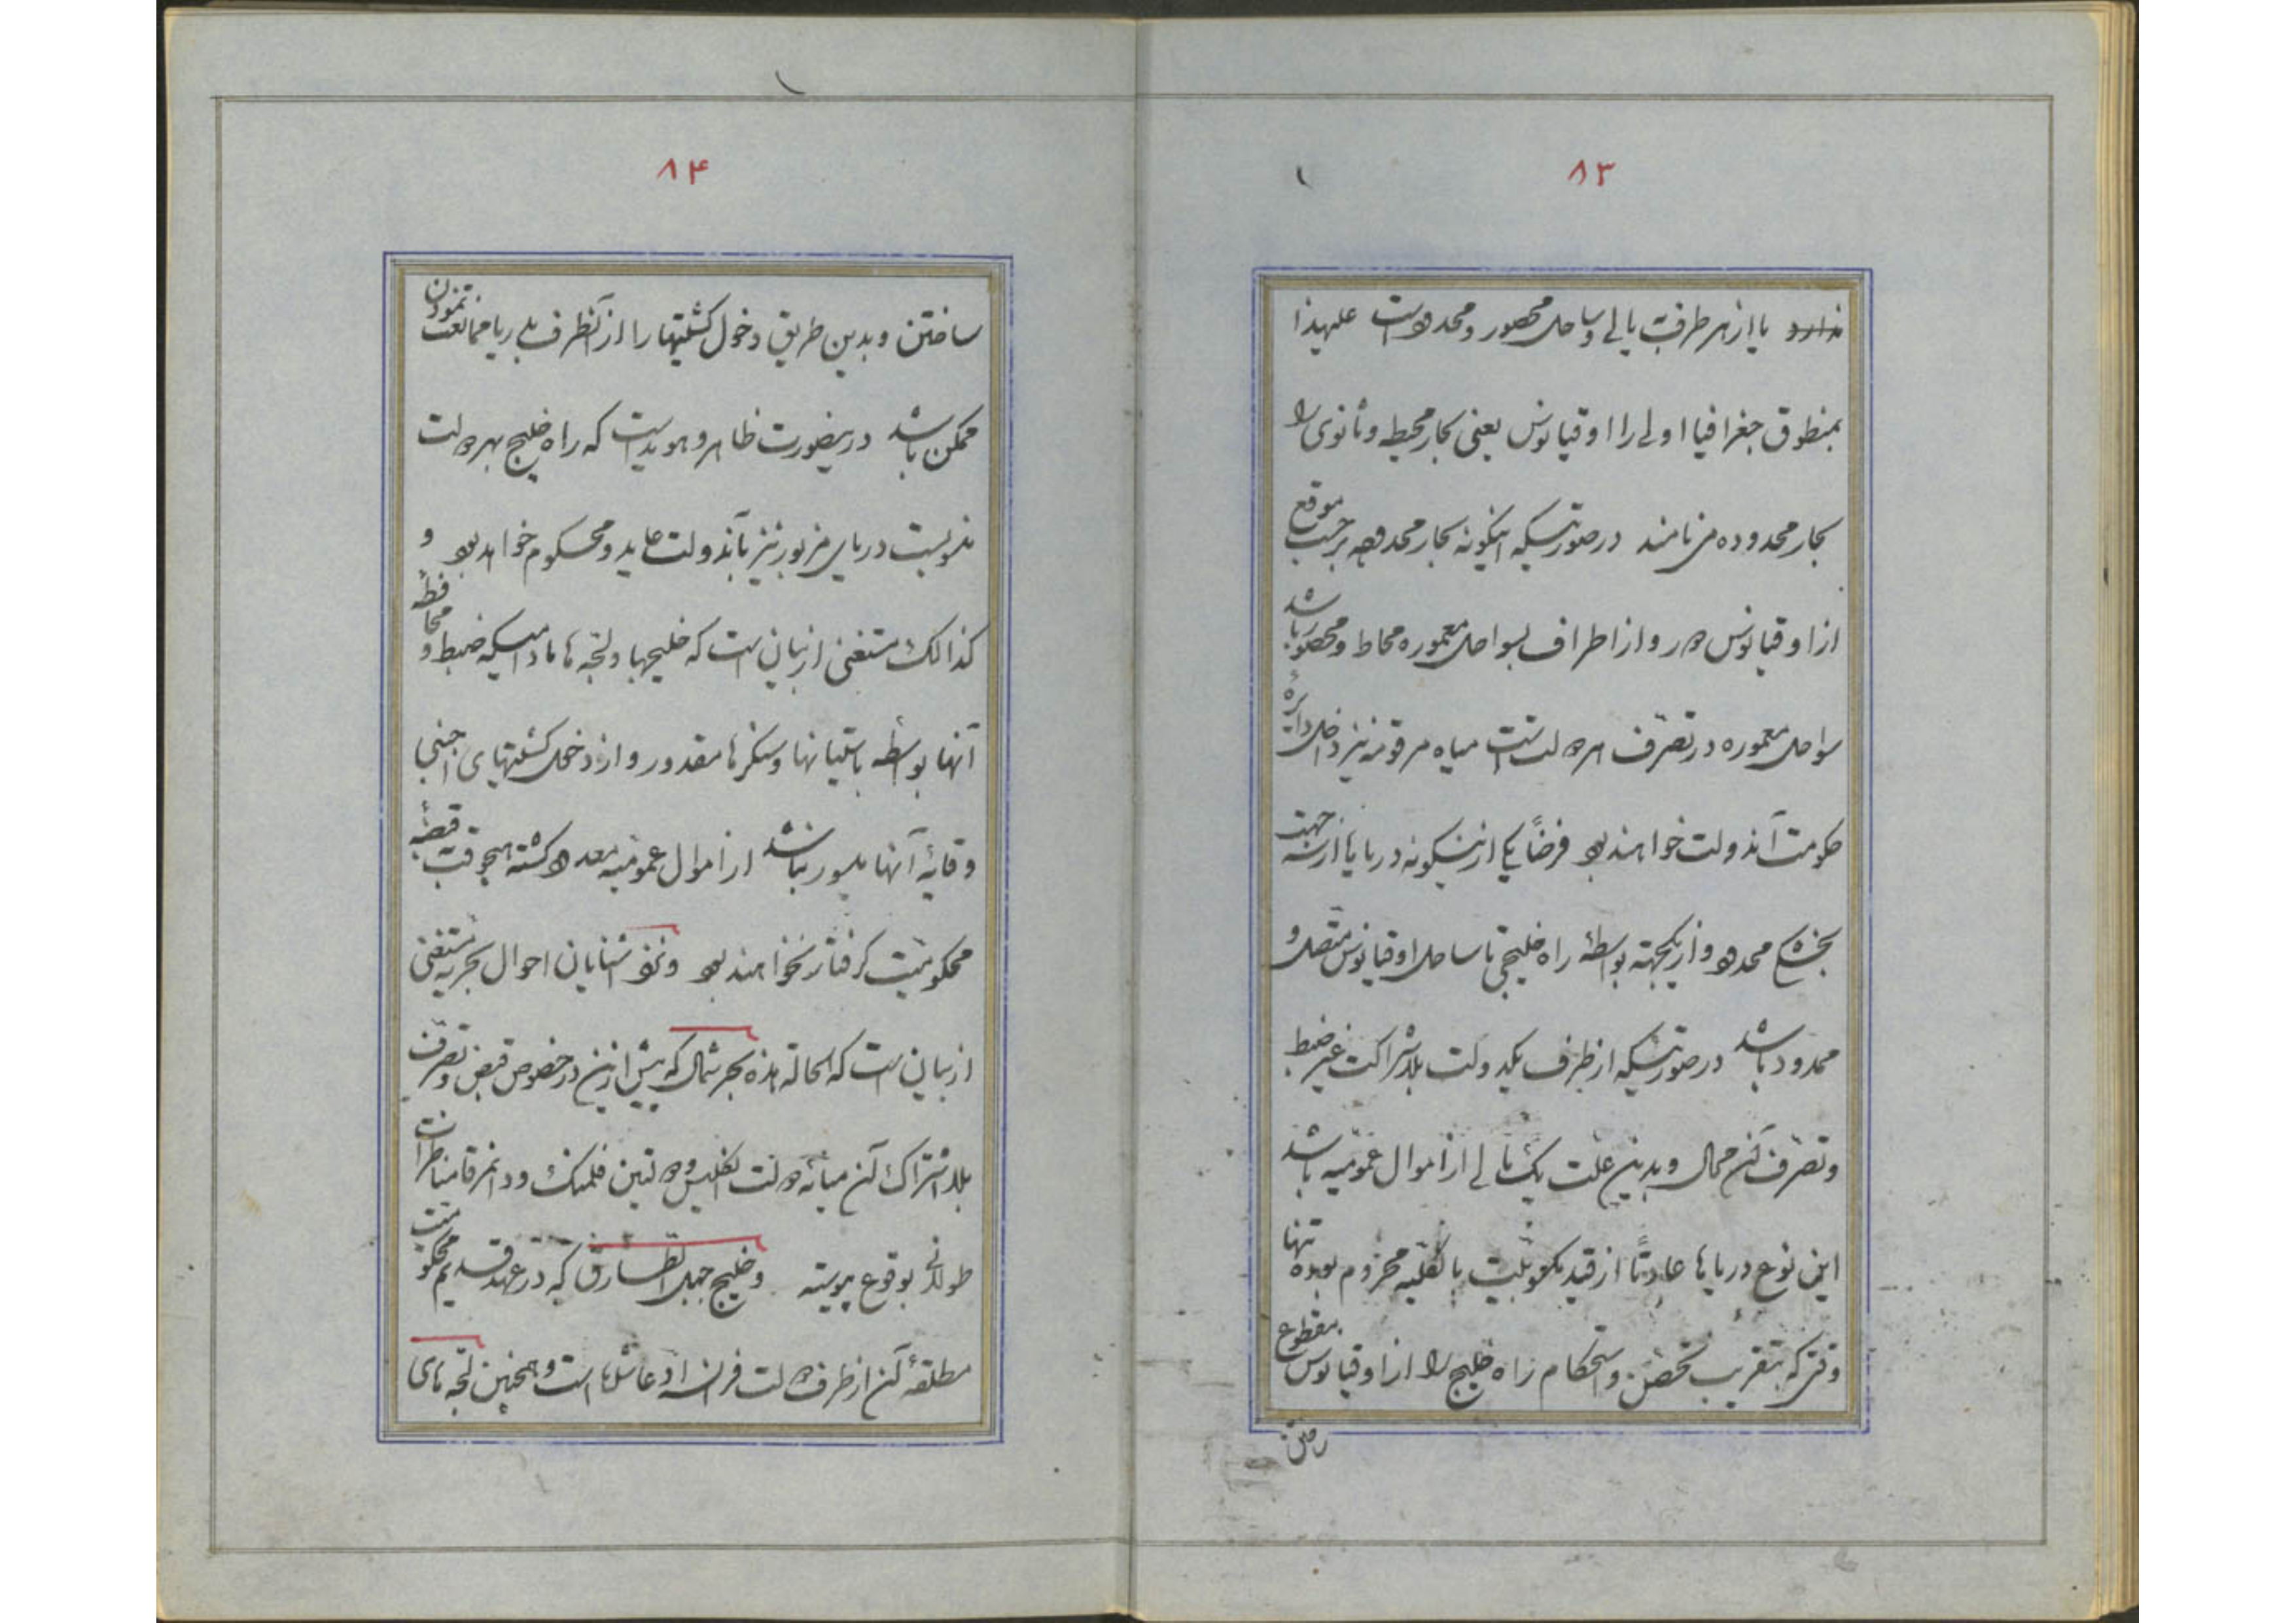 ۸۳
ندارد یا از هر طرف با اراضی و سواحل محصور و محدود است علیهذا
بمنطوق جغرافیا اولی را اوقیانوس یعنی بحار محیطه و ثانوی را
بحار محدوده می‌نامند در صورتیکه اینگونه بحار محدوده برحسب موقع
از اوقیانوس دور و از اطراف بسواحل معموره محاط و محصور باشد
سواحل معموره در تصرف هر دولت است میاه مرقومه نیز داخل دایرهٔ
حکومت آندولت خواهند بود فرضاً یکی ازینگونه دریاها از سه جهت
بخشکی محدود و از یکجهته بواسطه راه خلیجی تا ساحل اوقیانوس متصل و
محدود باشد در صورتیکه از طرف یکدولت بلااشتراک غیر ضبط
و تصرف آن محال و بدین علت از اموال عمومیه باشد
این نوع دریاها عادتاً از قید بالکلیه محروم بوده تنها
وقتی که بتقریب تحصن و استحکام راه خلیج را از اوقیانوس مقطوع
۸۴
ساختن و بدین طریق دخول کشتیها را از آنطرف بدریا ممانعت نمودن
ممکن باشد درینصورت ظاهر و هویداست که راه خلیج بهر دولت
منسوبست دریای مزبور نیز بآندولت عاید و محکوم خواهد بود و
کذالک مستغنی از بیان است که خلیجها و لجّه‌ها مادامیکه ضبط و محافظهٔ
آنها بواسطه باستیانها و سنگرها مقدور و از دخول کشتیهای اجنبی
وقایهٔ آنها میسور باشد از اموال عمومیه معدود گشته هیچوقت بقضیهٔ
محکومیت گرفتار نخواهند بود و نزد شناسایان احوال بحریه مستغنی
از بیان است که الحالة هذه بحر شمال که پیش ازین در خصوص قبض و تصرف
بلااشتراک آن میانهٔ دولت انگلیس و دولتین فلمنک و دانمرقا مناظرات
طولانی بوقوع پیوسته و خلیج جبل الطارق که در عهد قدیم محکومیت
مطلقهٔ آن از طرف دولت فرانسه ادعا شده است و همچنین لجّه‌های